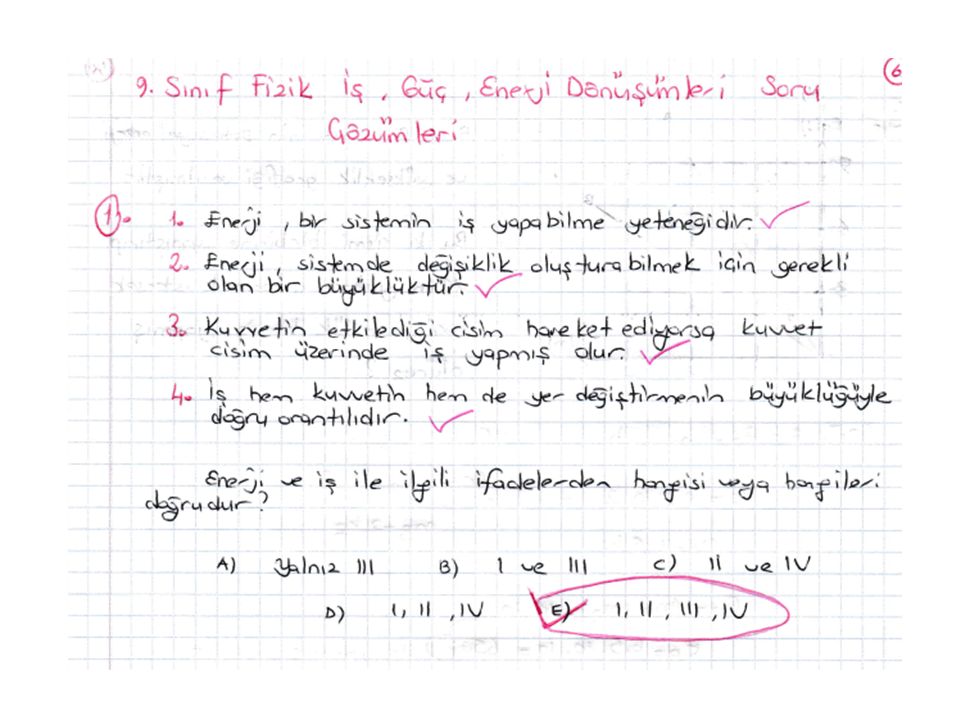 9. Sınıf Fizik İş, Güç, Enerji Dönüşümleri Soru
Çözümleri
6
1. 1. Enerji, bir sistemin iş yapabilme yeteneğidir.
2. Enerji, sistemde değişiklik oluşturabilmek için gerekli
olan bir büyüklüktür.
3. Kuvvetin etkilediği cisim hareket ediyorsa kuvvet
cisim üzerinde iş yapmış olur.
4. İş hem kuvvetin hem de yer değiştirmenin büyüklüğüyle
doğru orantılıdır.
Enerji ve iş ile ilgili ifadelerden hangisi veya hangileri
doğrudur?
A) Yalnız III B) I ve III C) II ve IV
D) I, II, IV E) I, II, III, IV